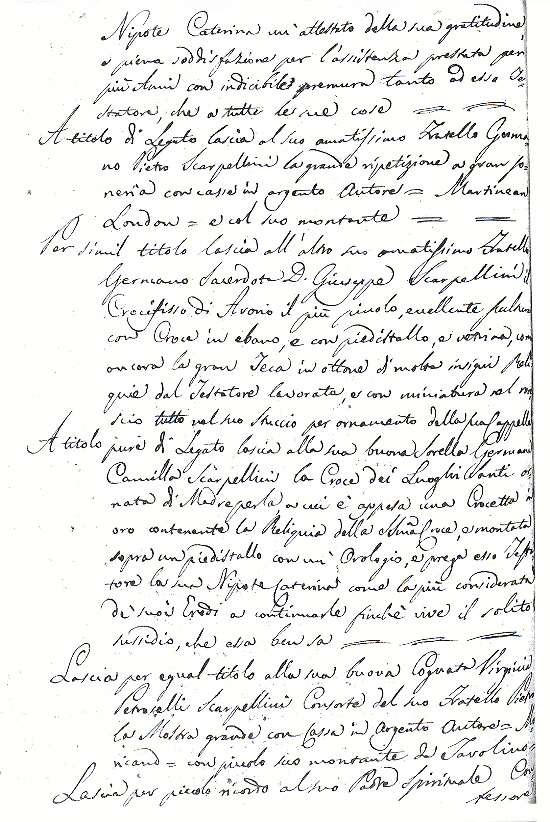 Nipote Caterina un' attestato della sua gratitudine,
e piena soddisfazione per l'assistenza prestata per
più Anni con indicibile premura tanto ad esso Te-
statore, che a tutte le sue cose = =
A titolo di Legato lascia al suo amatissimo Fratello Germa-
no Pietro Scarpellini la grande ripetizione a gran so-
neria con casse in argento Autore = Martineau
London = e col suo montante = =
Per simil titolo lascia all'altro suo amatissimo Fratello
Germano Sacerdote D. Giuseppe Scarpellini il
Crocifisso di Avorio il più piccolo, eccellente scultura
con Croce in ebano, e con piedistallo, e vetrina, com'
ancora la gran Teca in ottone di molte insigni Reli-
quie dal Testatore lavorata, e con miniatura nel ro-
scio tutto nel suo stuccio per ornamento della sua Cappella
A titolo pure di Legato lascia alla sua buona Sorella Germana
Camilla Scarpellini la Croce dei Luoghi Santi or-
nata di Madreperla a cui è appesa una Crocetta in
oro contenente la Reliquia della SSma Croce, e montata
sopra un piedistallo con un' Orologio, e prega esso Testa-
tore la sua Nipote Caterina come la più considerata
de' suoi Eredi a continuarle finchè vive il solito
sussidio, che essa ben sa = = =
Lascia per egual titolo alla sua buona Cognata Virginia
Petroselli Scarpellini Consorte del suo Fratello Pietro
la Mostra grande con Cassa in Argento Autore =
= con piccolo suo montante da Tavolino =
Lascia per piccolo ricordo al suo Padre Spirituale Con-
fessore